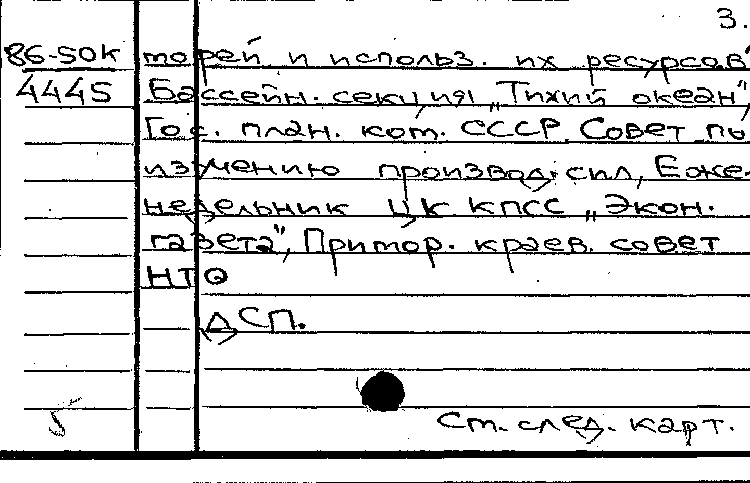 3.
86-50К торей и использ. их ресурсов
4445 Бассейн. секция „Тихий океан",
Гос. план. ком. СССР. Совет по
изучению производ. сил, Еже-
недельник ЦК КПСС „Экон.
газета", Примор. краев. совет
НТО
ДСП.
5
См. след. карт.